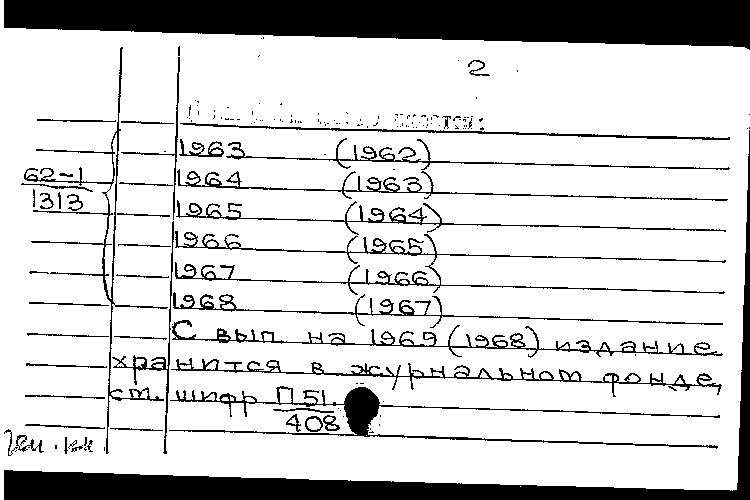 2
имеются:
1963 (1962)
62-1 1964 (1963)
1313 1965 (1964)
1966 (1965)
1967 (1966)
1968 (1967)
С вып на 1969 (1968) издание
хранится в журнальном фонде,
см. шифр П51.
408